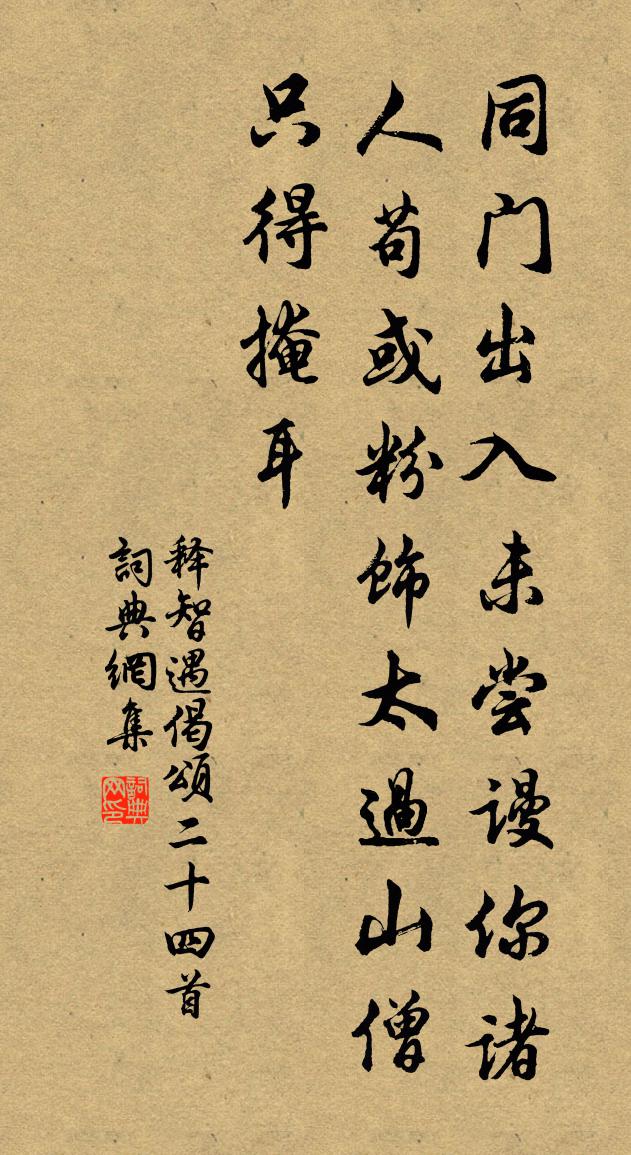 同门出入未尝谩你诸
人苟或粉饰太過山僧
只得掩耳
释智遇偈頌二十四首
詞典網集
詞典网印